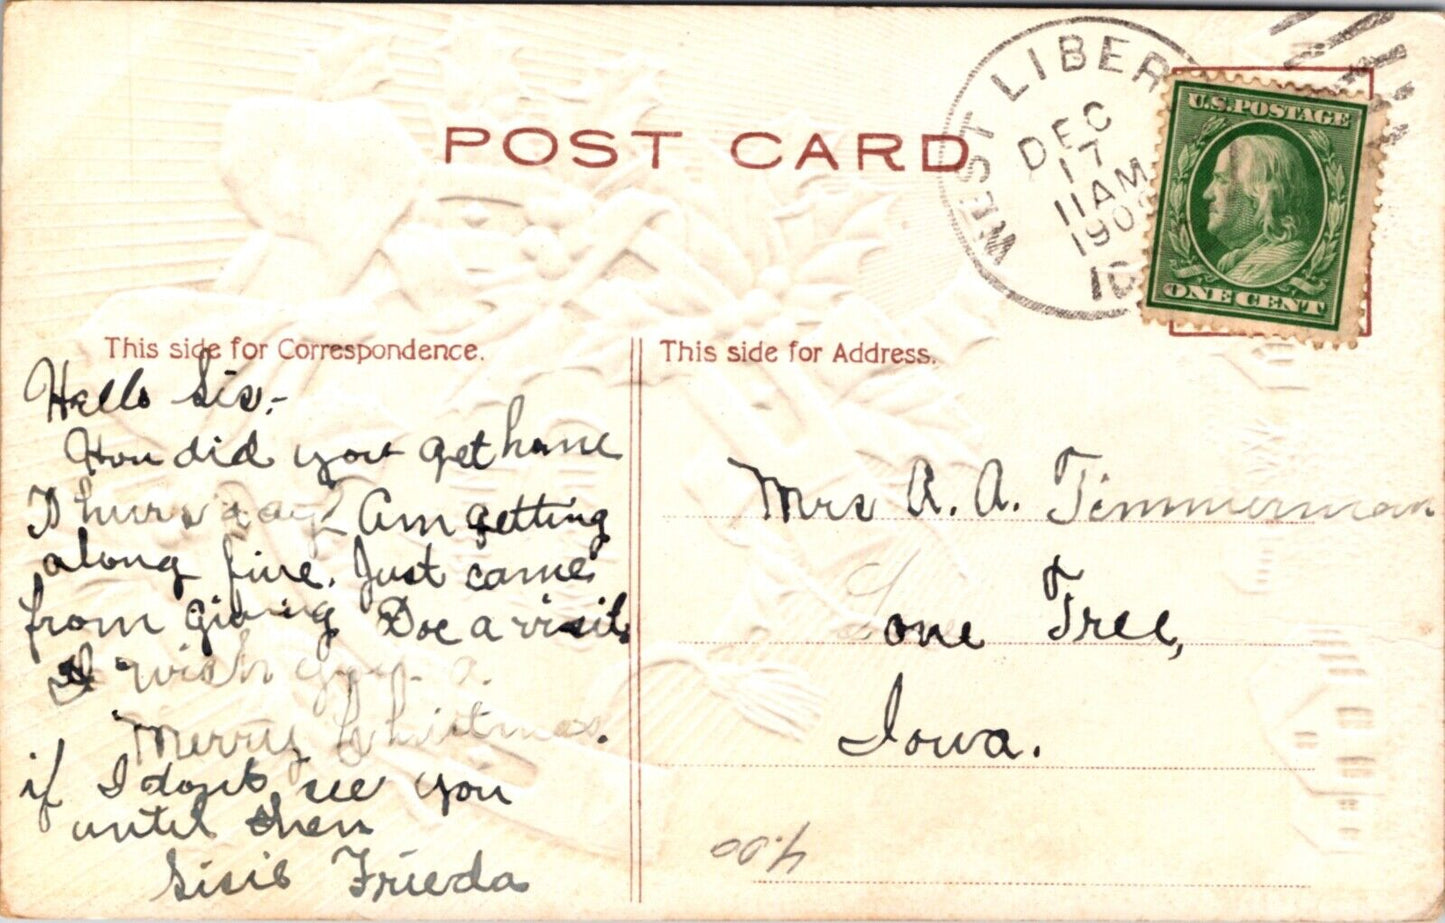 POST CARD
WEST LIBER
DEC
17
11AM
190
U.S. POSTAGE
ONE CENT
This side for Correspondence.
This side for Address.
Hello Sis,-
How did you get home
Thursday? Am getting
along fine. Just came
from giving Doc a visit.
I wish you a
Merry Christmas.
if I dont see you
until then
Sisie Frieda
Mrs A. A. Timmerman
Lone Tree,
Iowa.
4.00